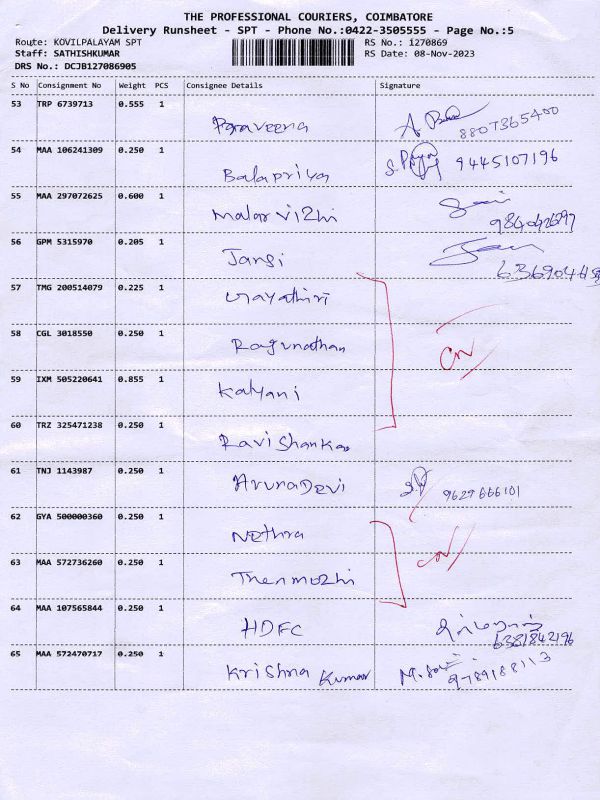 THE PROFESSIONAL COURIERS, COIMBATORE
Delivery Runsheet - SPT - Phone No.:0422-3505555 - Page No.:5
Route: KOVILPALAYAM SPT RS No.: 1270869
Staff: SATHISHKUMAR RS Date: 08-Nov-2023
DRS No.: DCJB127086905
S No Consignment No Weight PCS Consignee Details Signature
53 TRP 6739713 0.555 1
Praveena 8807365400
54 MAA 106241309 0.250 1
Balapriya S. Priya 9445107196
55 MAA 297072625 0.600 1
Malarvizhi
56 GPM 5315970 0.205 1
Jansi
57 TMG 200514079 0.225 1
Gayathiri
58 CGL 3018550 0.250 1
Ragunathan CN
59 IXM 505220641 0.855 1
Kalyani
60 TRZ 325471238 0.250 1
Ravi Shankar
61 TNJ 1143987 0.250 1
ArunaDevi 9629666101
62 GYA 500000360 0.250 1
Nethra CN
63 MAA 572736260 0.250 1
Thenmozhi
64 MAA 107565844 0.250 1
HDFC
6381842196
65 MAA 572470717 0.250 1
Krishna Kumar 9789188113